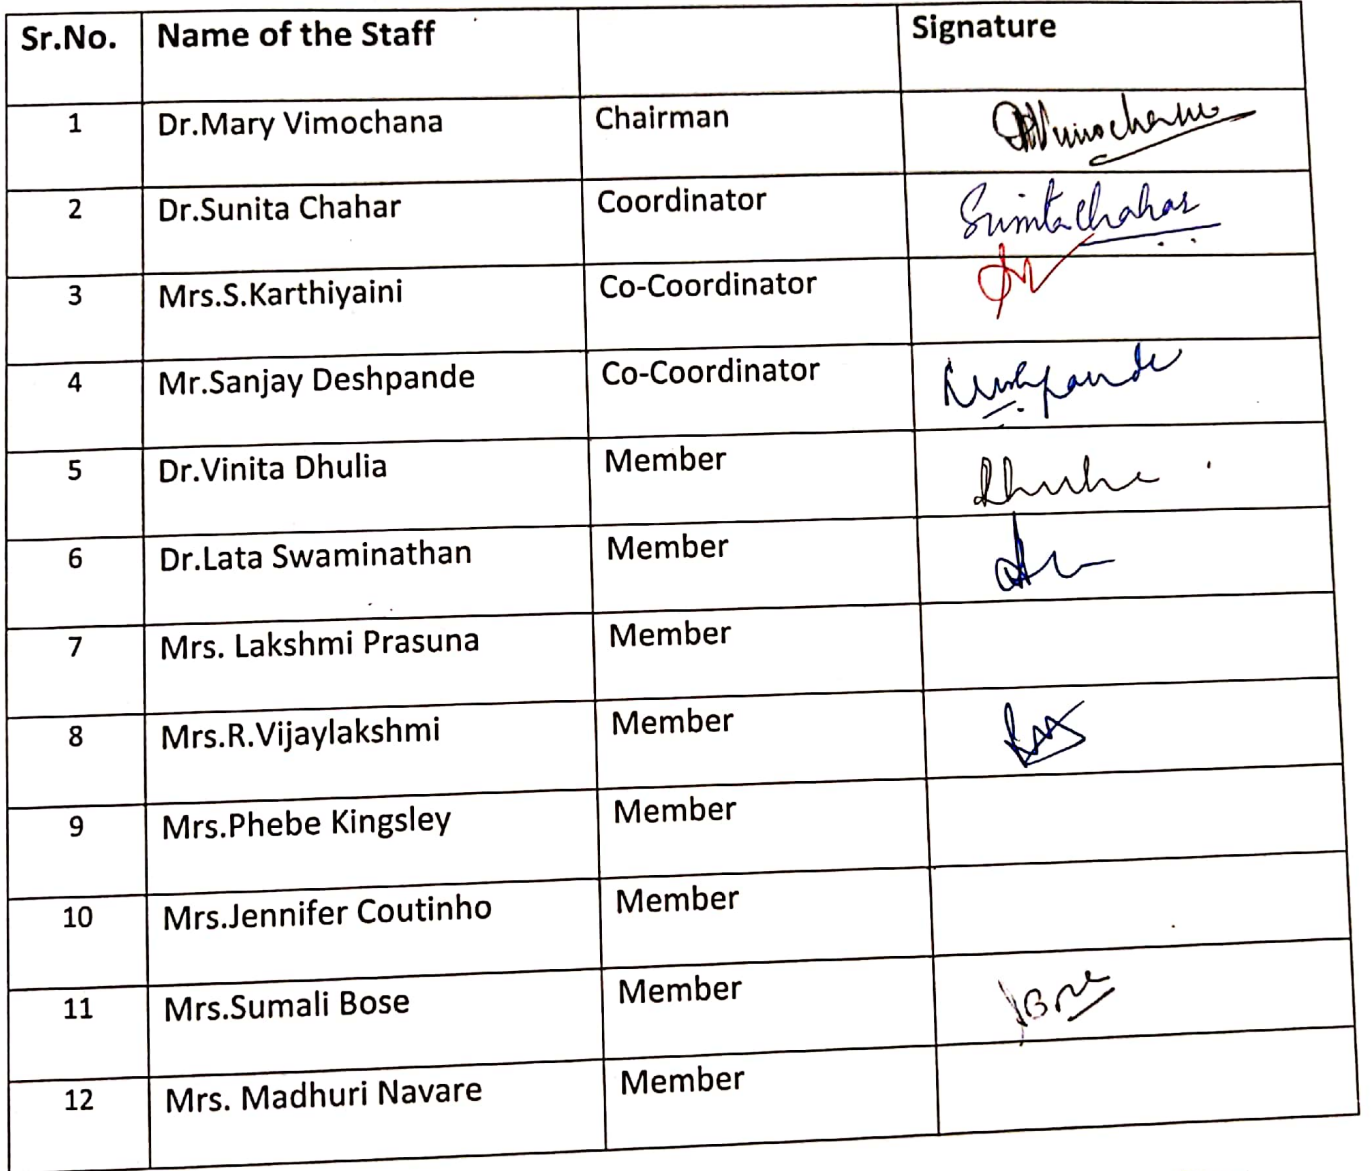 Sr.No. Name of the Staff Signature
1 Dr.Mary Vimochana Chairman
2 Dr.Sunita Chahar Coordinator Sunita Chahar
3 Mrs.S.Karthiyaini Co-Coordinator
4 Mr.Sanjay Deshpande Co-Coordinator
5 Dr.Vinita Dhulia Member
6 Dr.Lata Swaminathan Member
7 Mrs. Lakshmi Prasuna Member
8 Mrs.R.Vijaylakshmi Member
9 Mrs.Phebe Kingsley Member
10 Mrs.Jennifer Coutinho Member
11 Mrs.Sumali Bose Member Bose
12 Mrs. Madhuri Navare Member